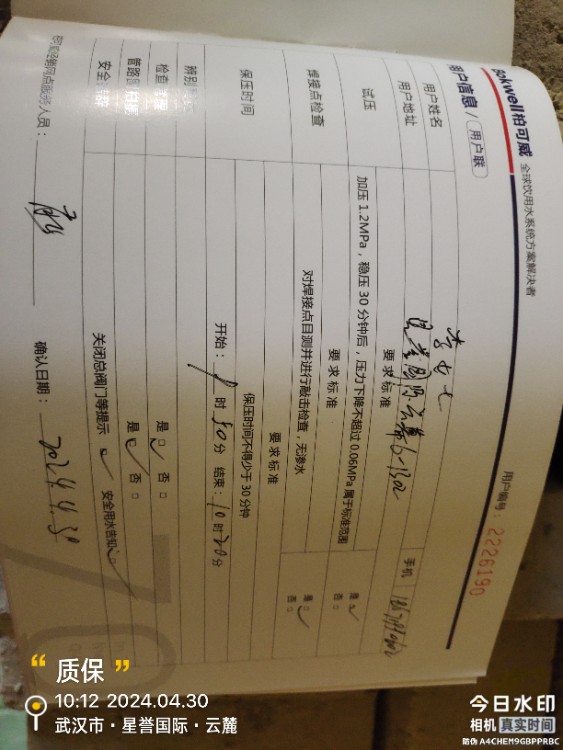 Bokwell柏可威 全球饮用水系统方案解决者
用户信息 / 用户联 用户编号：2226190
用户姓名 李女士
用户地址 星誉国际云麓6-1302 手机
试压 要求标准
加压 1.2MPa，稳压 30 分钟后，压力下降不超过 0.06MPa 属于标准范围 是 否
焊接点检查 要求标准
对焊接点目测并进行敲击检查，无渗水 是 否
保压时间 要求标准
保压时间不得少于 30 分钟
开始： 时 50分 结束：10时20分
检查 是 否
管路 是 否
安全 关闭总阀门等提示 安全用水告知
服务人员：
确认日期：
“质保”
10:12 2024.04.30
武汉市·星誉国际·云麓
今日水印
相机 真实时间
防伪 A4CHEM9GBPPRBC